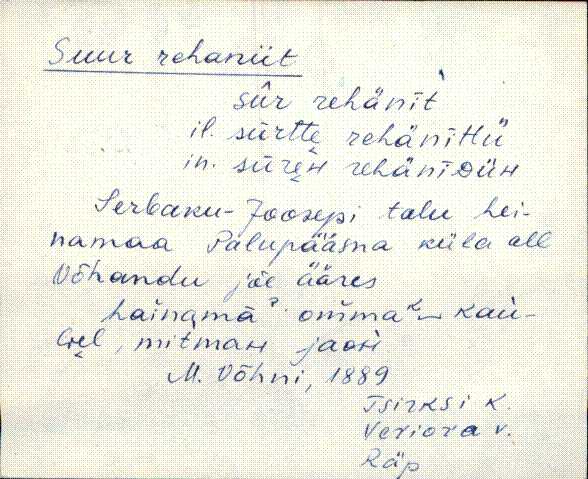 Suur rehaniit
sūr rehänīt̀
il. sūrtte̬ rehänīttü
in. sūre̬ʜ rehänīᴅüʜ
Serbaku-Joosepi talu hei-
namaa Palupääsna küla all
Võhandu jõe ääres
hainamā omma kau-
mitmaʜ
M. Võhni, 1889
Tsirksi k.
Veriora v.
Räp